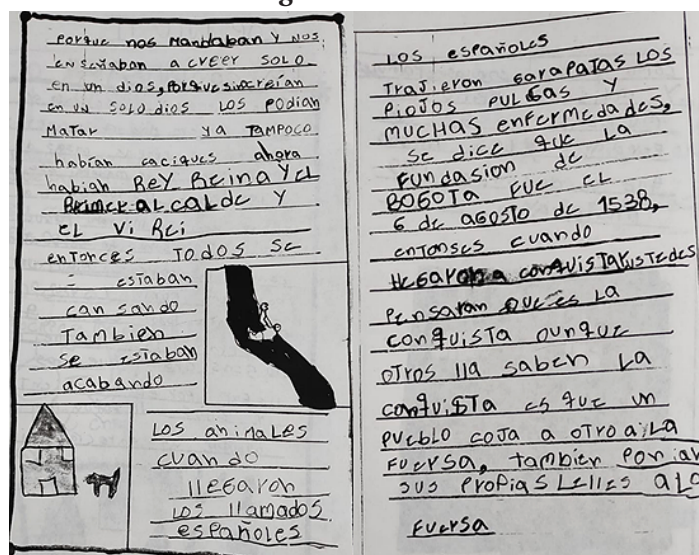 Porque nos Mandaban Y NOS
enseñaban a creer SOLO
en un dios, Porque sincreían
en un SOLO dios LOS PODIAN
MaTar Ya TAMPOCO
habían caciques ahora
habian ReY ReinaYeL
PRimeR aLcaLde Y
eL Vi Rei
enTonces TODOS Se
esTaban
can sando
También
Se esTaban
acabando
LOS aniMaLes
cuando
llegaron
LOS llamados
españoles
LOS españoles
TraJieron GaraPaTas LOS
PioJos PuLGas Y
MUCHAS enFermedades,
Se dice que La
FunDasion de
BOGOTA Fue eL
6 de aGosTo de 1538,
enTonses cuando
LLeGaron a conquisTar usTedes
Pensaran Que es La
conquisTa aunque
oTros lla saben La
conquisTa es que un
PuebLo coJa a oTro a La
Fuersa, Tambien Ponian
sus ProPias LeLLes aLa
Fuersa